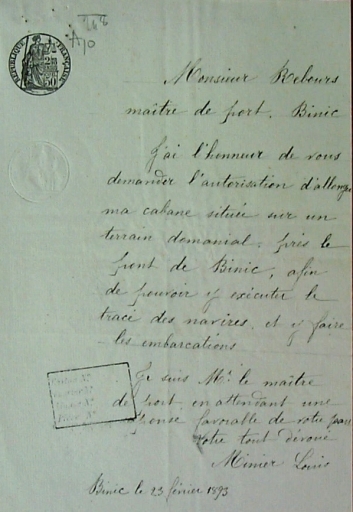 248
A 70
RÉPUBLIQUE FRANÇAISE
50
Monsieur Rebours
maître de port, Binic
J'ai l'honneur de vous
demander l'autorisation d'allonger
ma cabane située sur un
terrain domanial, près le
pont de Binic, afin
de pouvoir y exécuter le
tracé des navires et y faire
les embarcations
Je suis Mr le maître
de port en attendant une
réponse favorable de votre part
votre tout dévoué
Minier Louis
Binic le 23 février 1893